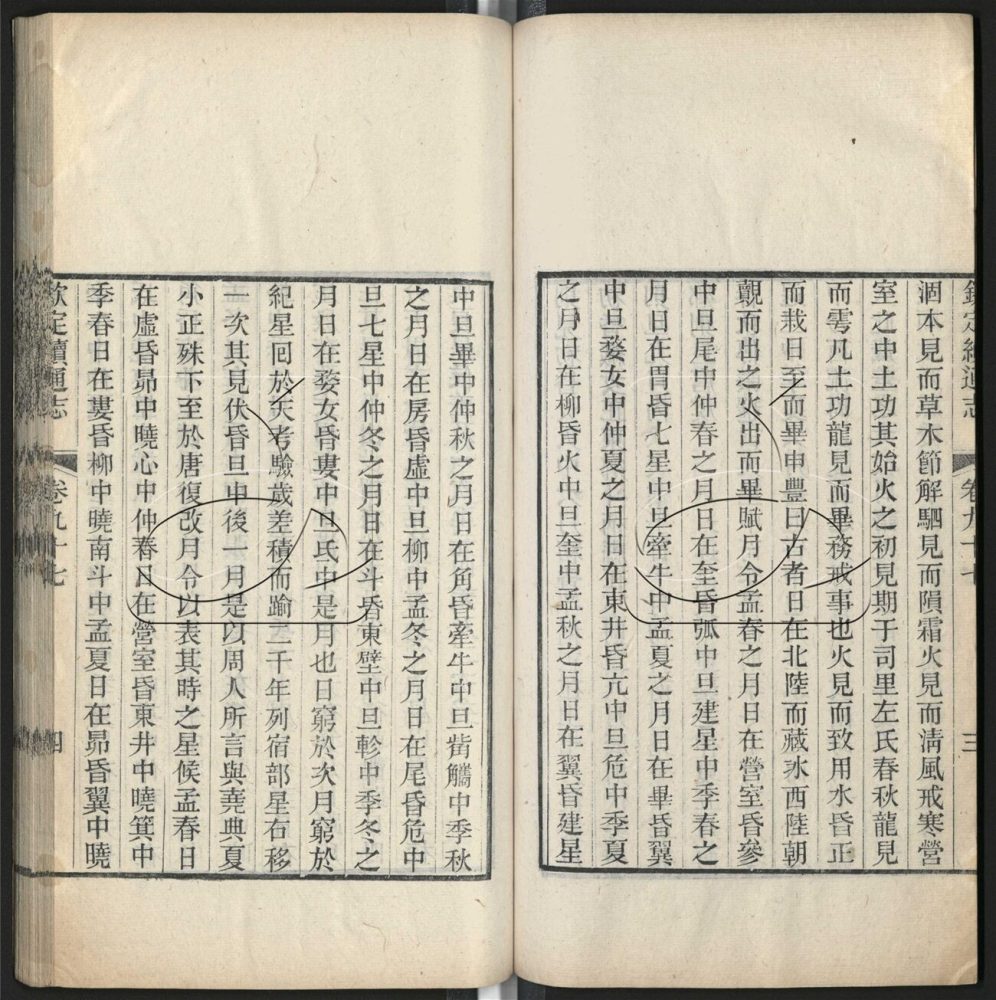 欽定續通志 卷九十七 三
涸本見而草木節解駟見而隕霜火見而淸風戒寒營
室之中土功其始火之初見期于司里左氏春秋龍見
而雩凡土功龍見而畢務戒事也火見而致用水昏正
而栽日至而畢申豐曰古者日在北陸而藏氷西陸朝
覿而出之火出而畢賦月令孟春之月日在營室昏參
中旦尾中仲春之月日在奎昏弧中旦建星中季春之
月日在胃昏七星中旦牽牛中孟夏之月日在畢昏翼
中旦婺女中仲夏之月日在東井昏亢中旦危中季夏
之月日在柳昏火中旦奎中孟秋之月日在翼昏建星
中旦畢中仲秋之月日在角昏牽牛中旦觜觿中季秋
之月日在房昏虛中旦柳中孟冬之月日在尾昏危中
旦七星中仲冬之月日在斗昏東壁中旦軫中季冬之
月日在婺女昏婁中旦氐中是月也日窮於次月窮於
紀星回於天考驗歲差積而踰二千年列宿部星右移
一次其見伏昏旦中後一月是以周人所言與堯典夏
小正殊下至於唐復改月令以表其時之星候孟春日
在虛昏昴中曉心中仲春日在營室昏東井中曉箕中
季春日在婁昏柳中曉南斗中孟夏日在昴昏翼中曉
欽定續通志 卷九十七 四